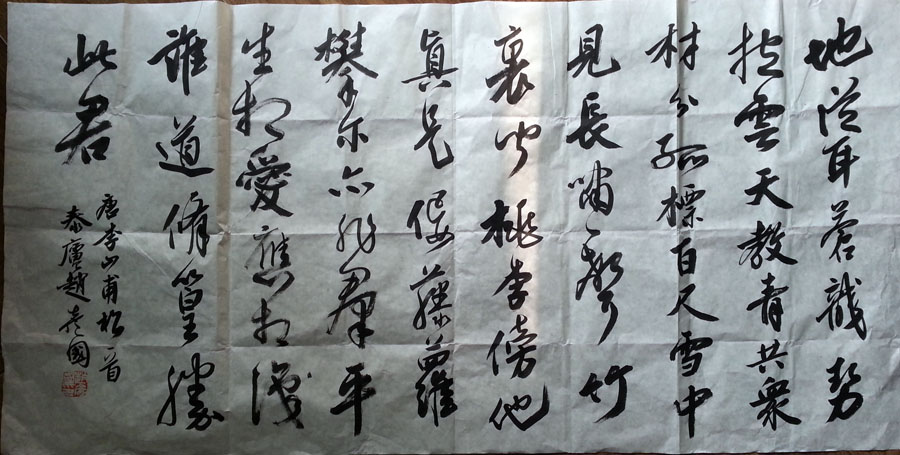 地聳蒼龍勢
抱雲天教青共衆
材分孤標百尺雪中
見長嘯一聲風
裏聞桃李傍他
真是佞藤蘿
攀尔亦非羣平
生相愛應相識
誰道脩篁勝
此君
唐李山甫松一首
泰廬趙國